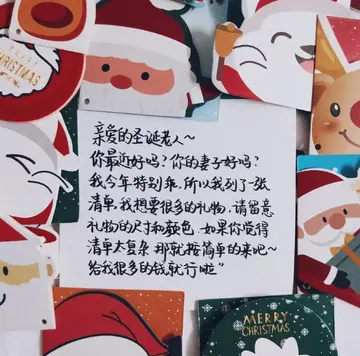 MERRY
CHRISTMAS
亲爱的圣诞老人～
你最近好吗？你的妻子好吗？
我今年特别乖，所以我列了一张
清单，我想要很多的礼物，请留意
礼物的尺寸和颜色，如果你觉得
清单太复杂，那就按简单的来吧～
给我很多的钱就行啦”
MERRY
CHRISTMAS